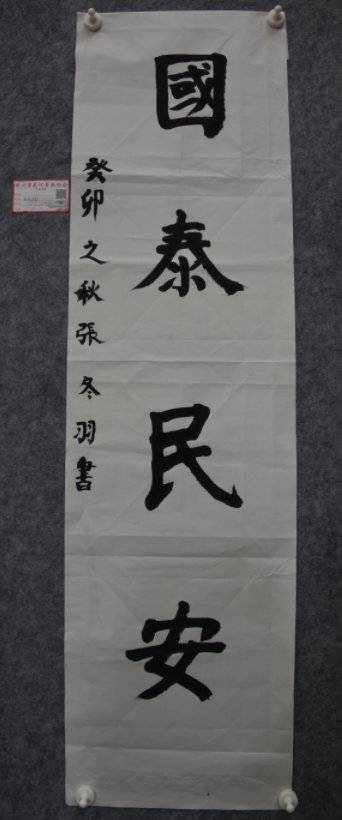 國泰民安
癸卯之秋張冬羽書